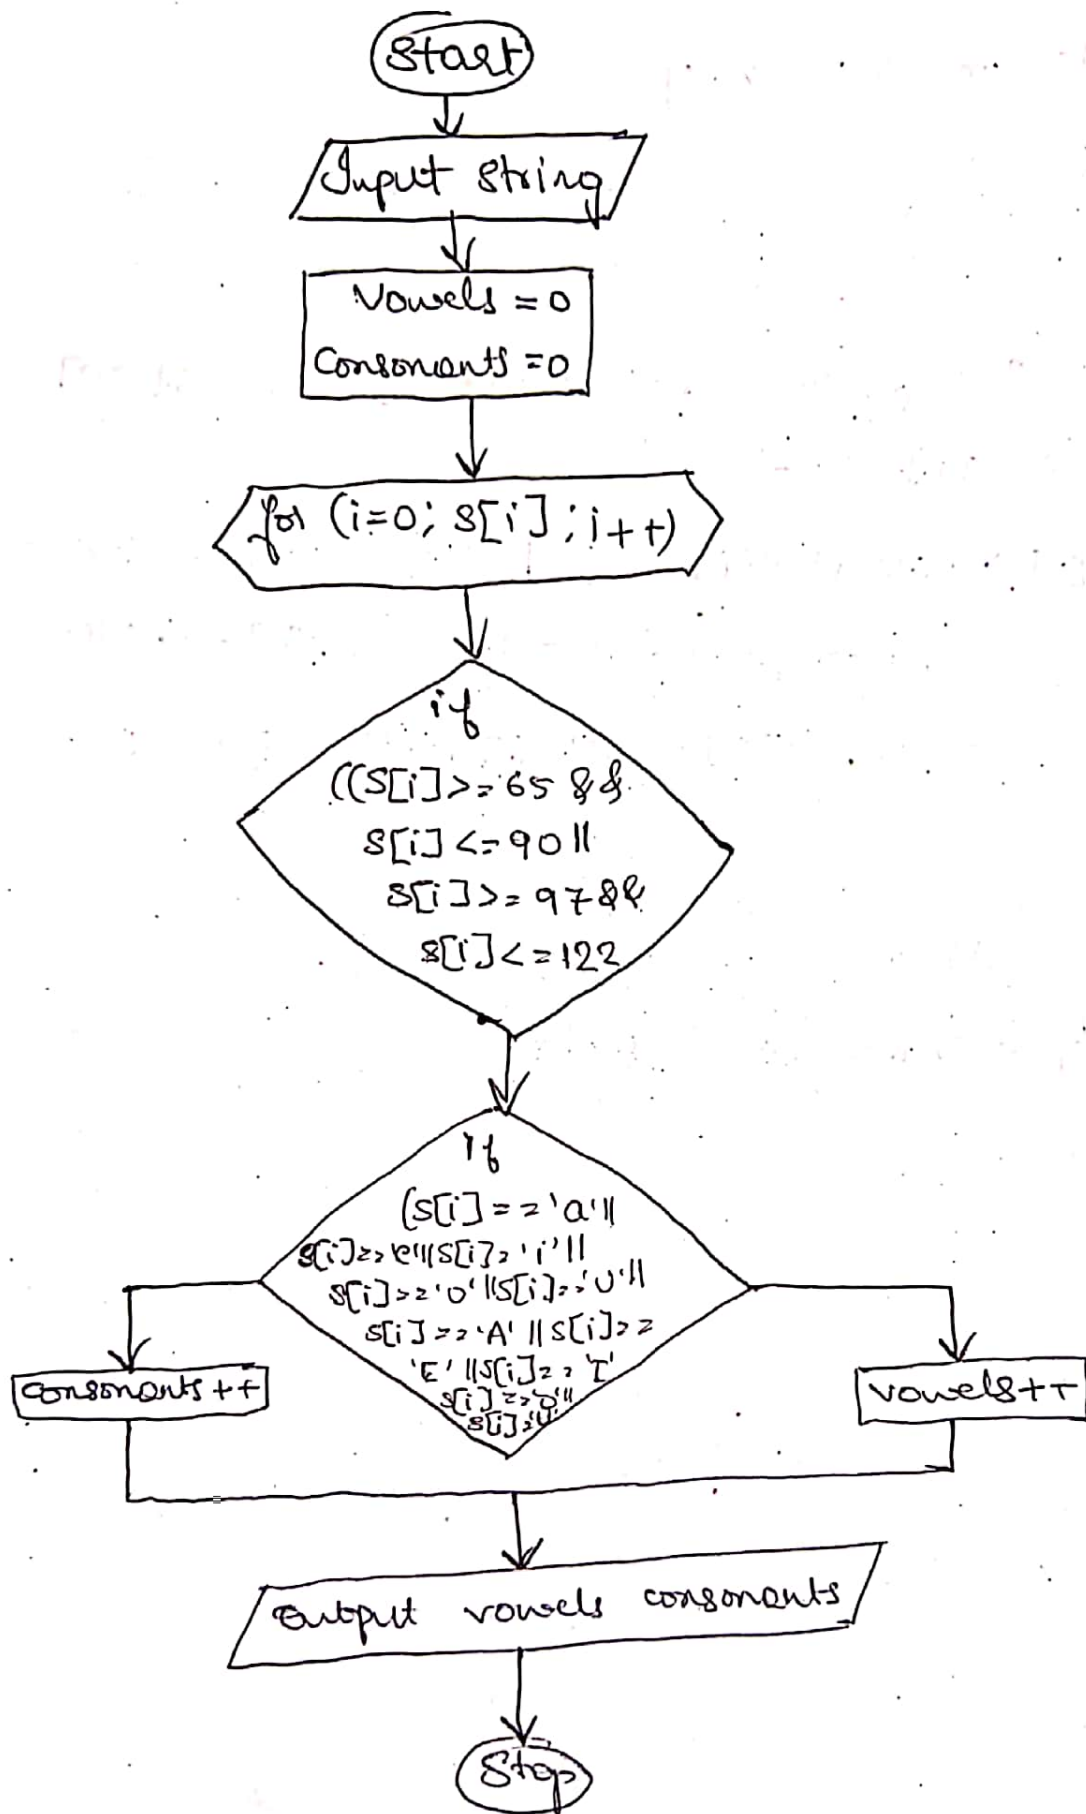 Start
Input string
Vowels = 0
Consonants = 0
for (i=0; s[i]; i++)
if
((S[i]>=65 &&
S[i] <= 90 ||
S[i]>= 97 &&
s[i]<=122
if
(S[i]=='a'||
s[i]=='e'||s[i]='i'||
s[i]=='o'||s[i]=='u'||
s[i]=='A'||s[i]==
'E'||s[i]=='I'
s[i]=='O'||
s[i]='U'
consonants++
vowels++
output vowels consonants
Stop